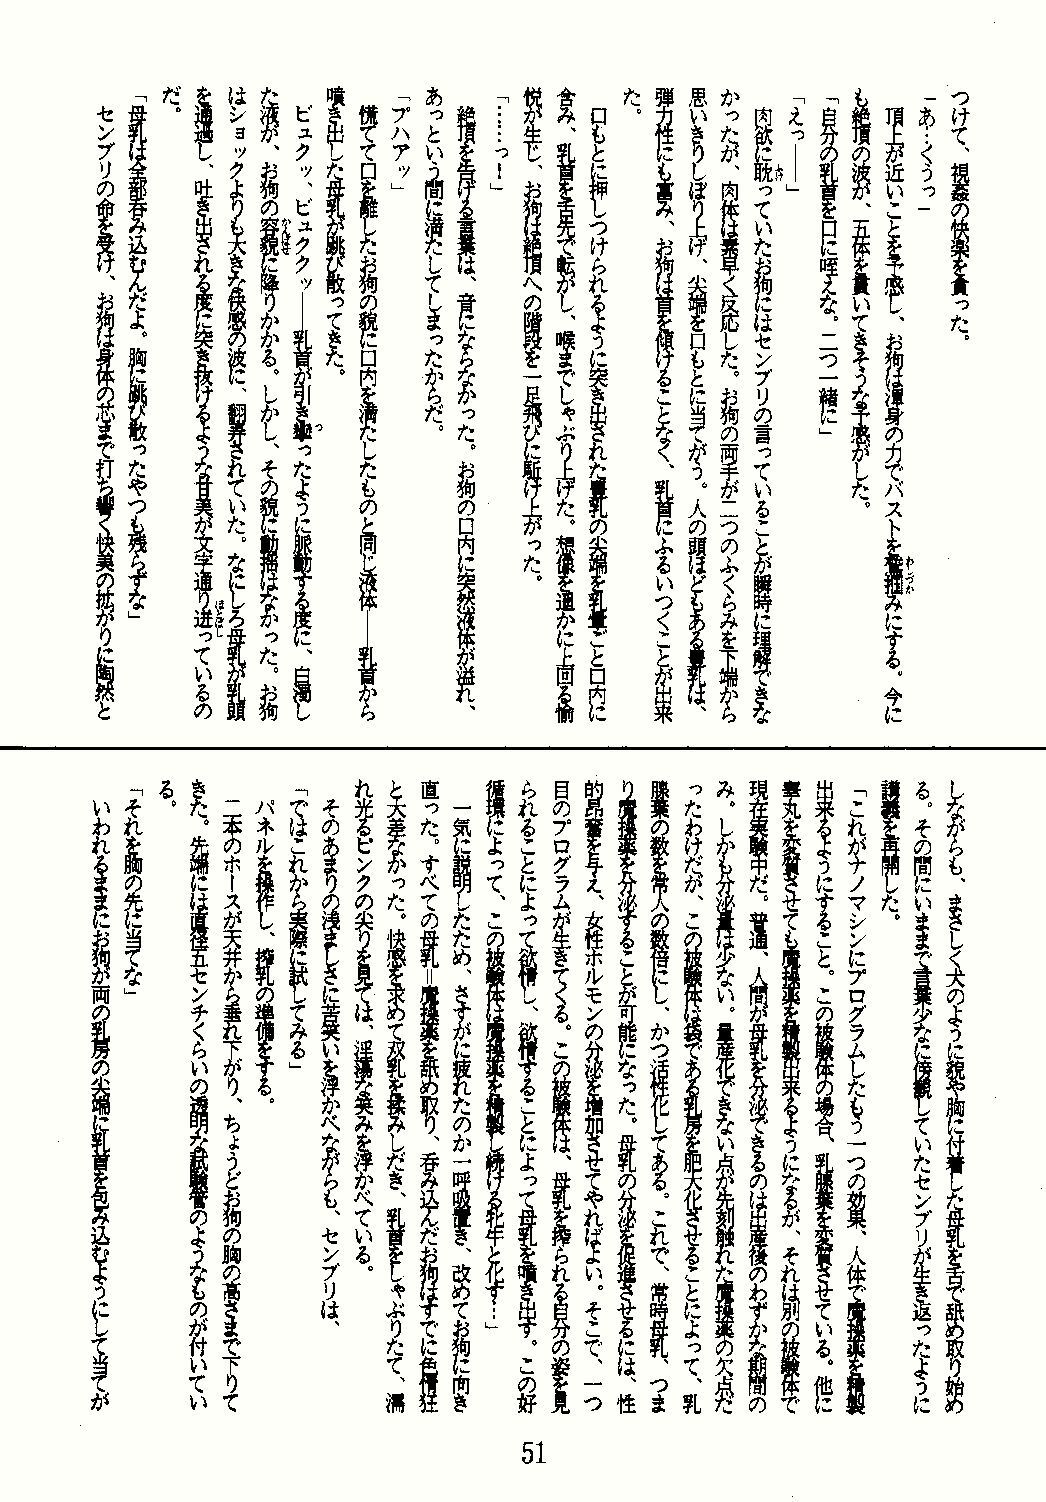 つけて、視姦の快楽を貪った。
「あ…くうっ」
頂上が近いことを予感し、お狗は渾身の力でバストを鷲掴みにする。今に
も絶頂の波が、五体を貫いてきそうな予感がした。
「自分の乳首を口に咥えな。二つ一緒に」
「えっ――」
肉欲に耽っていたお狗にはセンブリの言っていることが瞬時に理解できな
かったが、肉体は素早く反応した。お狗の両手が二つのふくらみを下端から
思いきりしぼり上げ、尖端を口もとに当てがう。人の頭ほどもある豊乳は、
弾力性にも富み、お狗は首を傾けることなく、乳首にふるいつくことが出来
た。
口もとに押しつけられるように突き出された豊乳の尖端を乳暈ごと口内に
含み、乳首を舌先で転がし、喉までしゃぶり上げた。想像を遥かに上回る愉
悦が生じ、お狗は絶頂への階段を一足飛びに駈け上がった。
「……っ！」
絶頂を告げる言葉は、音にならなかった。お狗の口内に突然液体が溢れ、
あっという間に満たしてしまったからだ。
「プハアッ」
慌てて口を離したお狗の貌に口内を満たしたものと同じ液体――乳首から
噴き出した母乳が跳び散ってきた。
ビュクッ、ビュククッ――乳首が引き攣ったように脈動する度に、白濁し
た液が、お狗の容貌に降りかかる。しかし、その貌に動揺はなかった。お狗
はショックよりも大きな快感の波に、翻弄されていた。なにしろ母乳が乳頭
を通過し、吐き出される度に突き抜けるような甘美が文字通り迸っているの
だ。
「母乳は全部呑み込むんだよ。胸に跳び散ったやつも残らずな」
センブリの命を受け、お狗は身体の芯まで打ち響く快美の拡がりに陶然と
しながらも、まさしく犬のように貌や胸に付着した母乳を舌で舐め取り始め
る。その間にいままで言葉少なに傍観していたセンブリが生き返ったように
講義を再開した。
「これがナノマシンにプログラムしたもう一つの効果、人体で魔操薬を精製
出来るようにすること。この被験体の場合、乳腺葉を変質させている。他に
睾丸を変質させても魔操薬を精製出来るようになるが、それは別の被験体で
現在実験中だ。普通、人間が母乳を分泌できるのは出産後のわずかな期間の
み。しかも分泌量は少ない。量産化できない点が先刻触れた魔操薬の欠点だ
ったわけだが、この被験体は袋である乳房を肥大化させることによって、乳
腺葉の数を常人の数倍にし、かつ活性化してある。これで、常時母乳、つま
り魔操薬を分泌することが可能になった。母乳の分泌を促進させるには、性
的昂奮を与え、女性ホルモンの分泌を増加させてやればよい。そこで、一つ
目のプログラムが生きてくる。この被験体は、母乳を搾られる自分の姿を見
られることによって欲情し、欲情することによって母乳を噴き出す。この好
循環によって、この被験体は魔操薬を精製し続ける牝牛と化す…」
一気に説明したため、さすがに疲れたのか一呼吸置き、改めてお狗に向き
直った。すべての母乳＝魔操薬を舐め取り、呑み込んだお狗はすでに色情狂
と大差なかった。快感を求めて双乳を揉みしだき、乳首をしゃぶりたて、濡
れ光るピンクの尖りを見ては、淫蕩な笑みを浮かべている。
そのあまりの浅ましさに苦笑いを浮かべながらも、センブリは、
「ではこれから実際に試してみる」
パネルを操作し、搾乳の準備をする。
二本のホースが天井から垂れ下がり、ちょうどお狗の胸の高さまで下りて
きた。先端には直径五センチくらいの透明な試験管のようなものが付いてい
る。
「それを胸の先に当てな」
いわれるままにお狗が両の乳房の尖端に乳首を包み込むようにして当てが
51